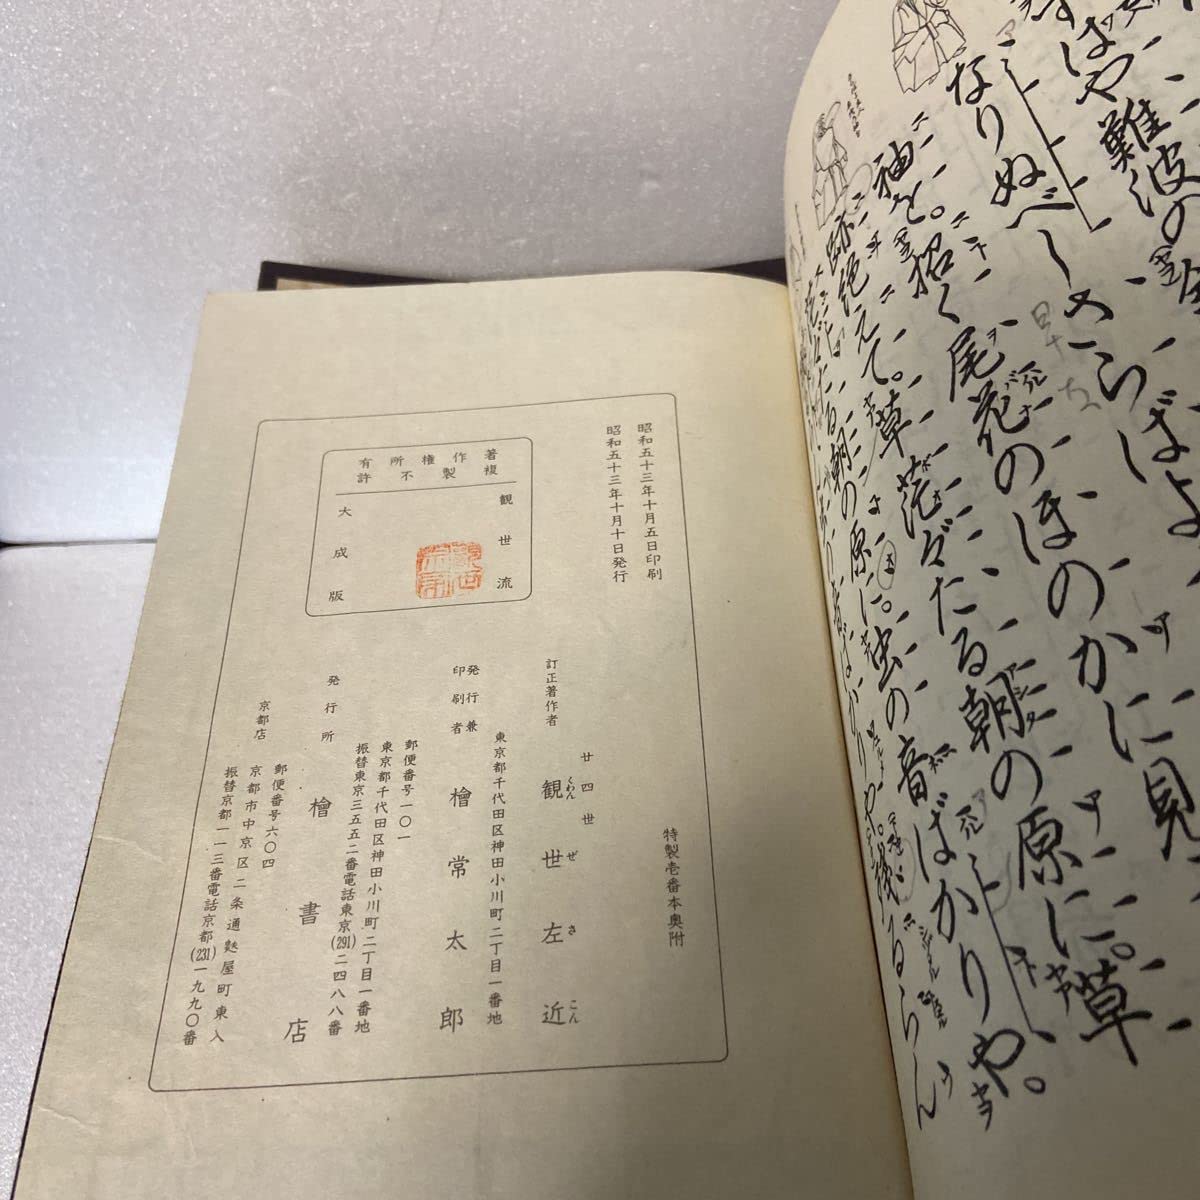 難波の
なりぬべしさらばよ
袖を。招く尾花のほのかに見え
跡絶えて。草茫々たる朝の原に。草
茫々たる朝の原に。虫の音ばかりや。
残るらん
昭和五十三年十月五日印刷
昭和五十三年十月十日発行
著作権所有
複製不許
観世流
大成版
特製壱番本奥附
訂正著作者
廿四世
観世左近
くわんぜさこん
東京都千代田区神田小川町二丁目一番地
発行兼
印刷者
檜常太郎
郵便番号一〇一
東京都千代田区神田小川町二丁目一番地
振替東京三五五二番電話東京(291)二四八八番
発行所
檜書店
郵便番号六〇四
京都店
京都市中京区二条通麩屋町東入
振替京都一一三番電話京都(231)一九九〇番